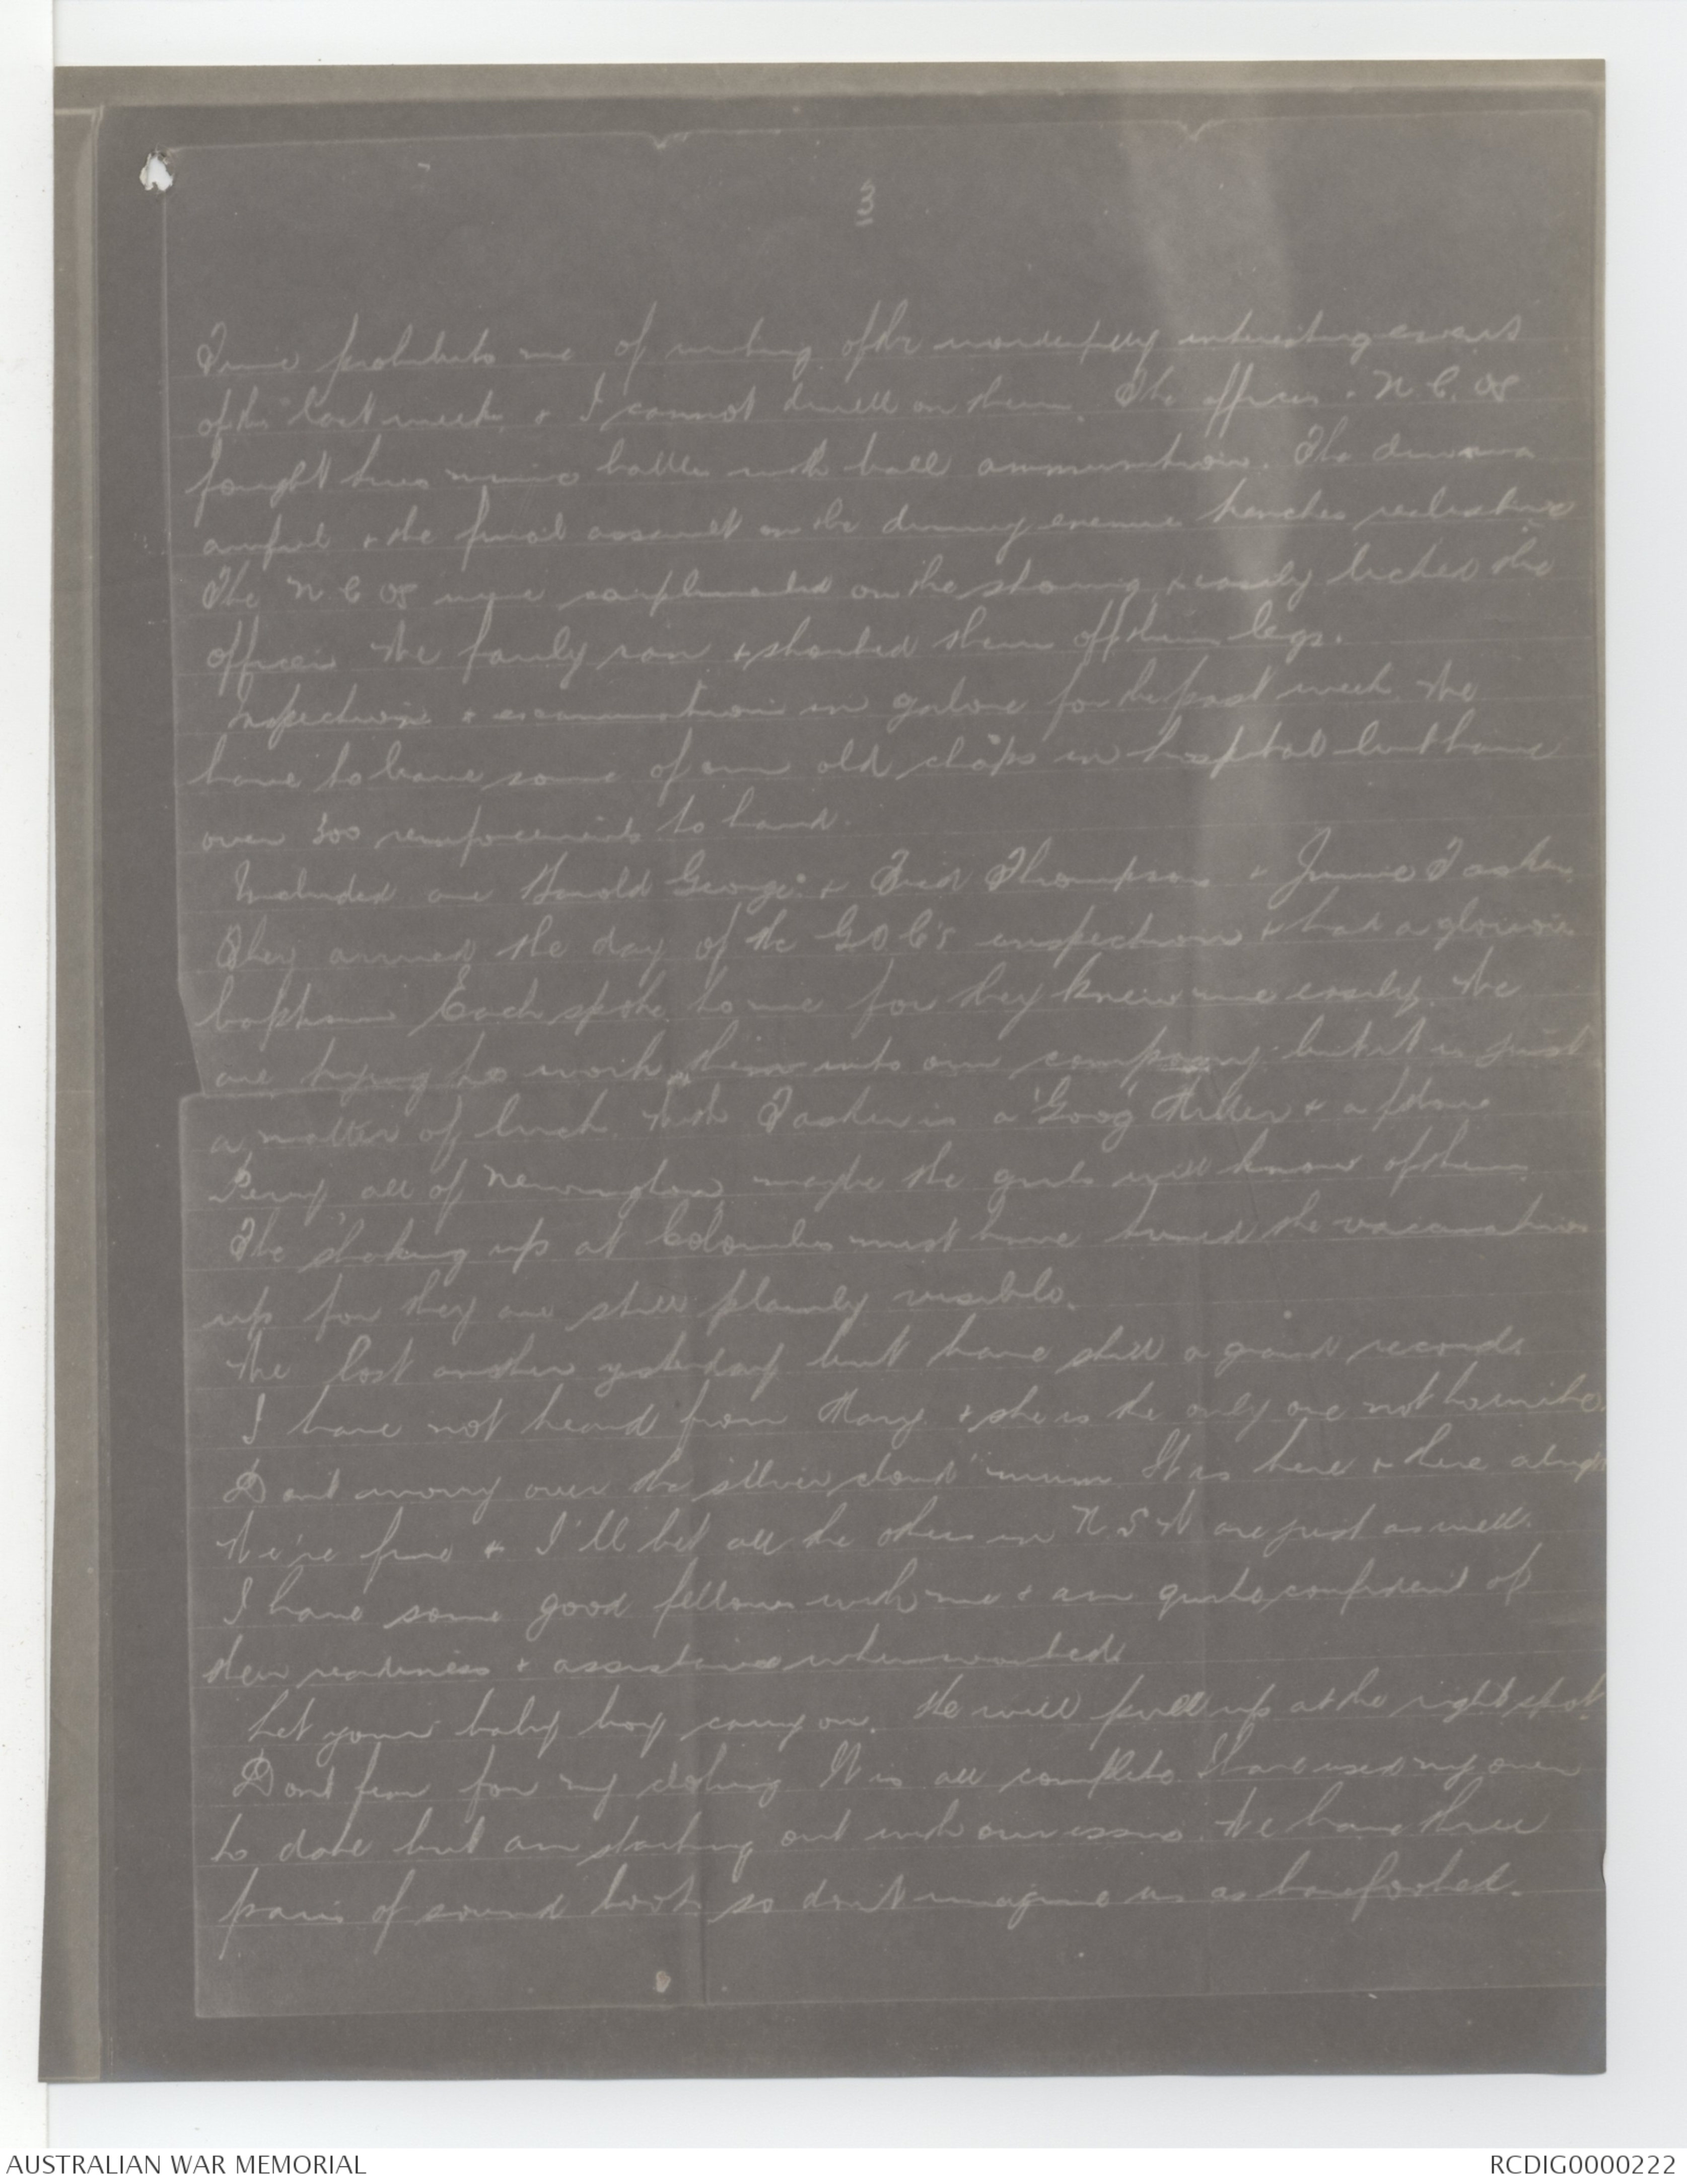 3
Time prohibits me of writing of the wonderfully interesting events
of the last week, & I cannot dwell on them. The officers & N.C.Os
fought two mimic battles with ball ammunition. The din was
awful & the final assault on the dummy enemie trenches realistic
The N C Os were complimented on the showing & easily licked the
officers We fairly ran & shouted them off their legs.
Inspections & examinations in galore for the past week. We
have to leave some of our old chaps in hospital but have
over 300 reinforcements to hand.
Included are Harold George & Fred Thompson & Jimmie Tasker.
They arrived the day of the G O C's inspection & had a glorious
baptism Each spoke to me for they knew me easily. We
are trying to work them into our company but it is just
a matter of luck. With Tasker is a 'Goog' Miller & a
Perry, all of Newington, maybe the girls will know of them.
The shaking up at Colombo must have the
up for they are still plainly visible.
We lost another yesterday but have still a grand record.
I have not heard from Mary & she is the only one not to write.
Don't worry over the 'silver cloud' mum It is here & there
We're fine & I'll bet all the others in N.S.W are just as well.
I have some good fellows with me & am quite confident of
their readiness & assistance when wanted.
Let your baby boy carry on. He will pull up at the right spot.
Dont fear for my clothing It is all complete. I have used my own
to date but am starting out with our issue. We have three
pairs of sound boots so don't imagine us as barefooted.
AUSTRALIAN WAR MEMORIAL
RCDIG0000222